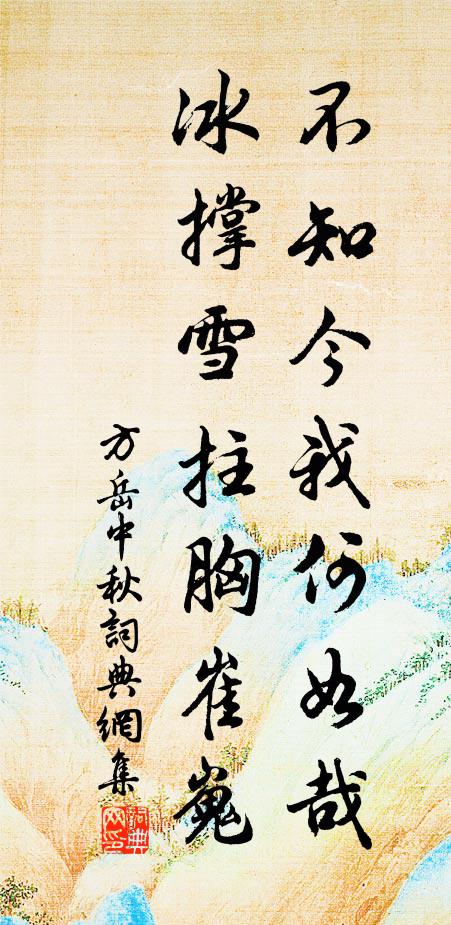 不知今我何如哉
冰撐雪拄胸崔嵬
方岳中秋詞典網集
詞典網印